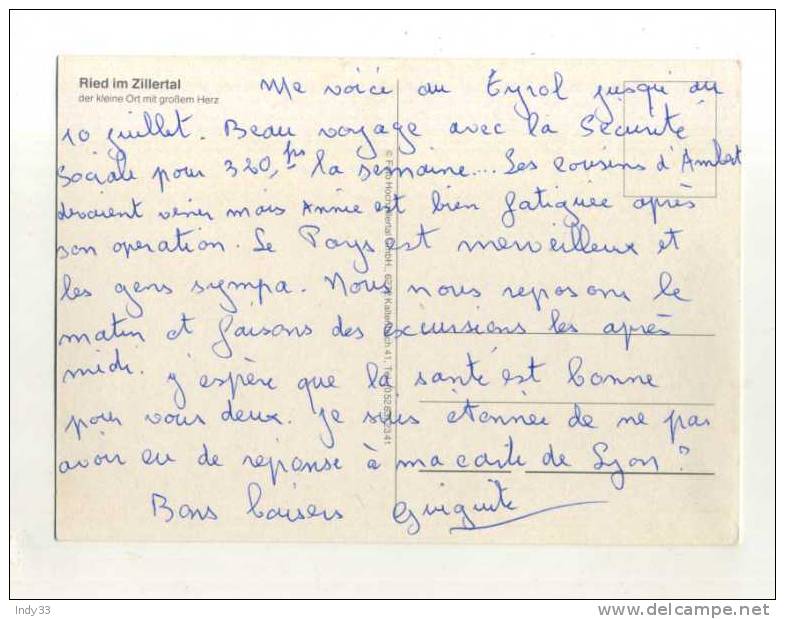 Ried im Zillertal
der kleine Ort mit großem Herz
Me voici au Tyrol jusqu'au
10 juillet. Beau voyage avec la Sécurité
Sociale pour 320,frs la semaine... Les cousins d'Ambert
devaient venir mais Annie est bien fatiguée après
son operation. Le Pays est merveilleux et
les gens sympa. Nous nous reposons le
matin et faisons des excursions les après
midi. j'espère que la santé est bonne
pour vous deux. Je suis étonnée de ne pas
avoir eu de réponse à ma carte de Lyon ?
Bons baisers Guiguite
© Foto Hochzillertal GmbH., Kaltenbach 41, Tel.
Indy33
www.delcampe.net